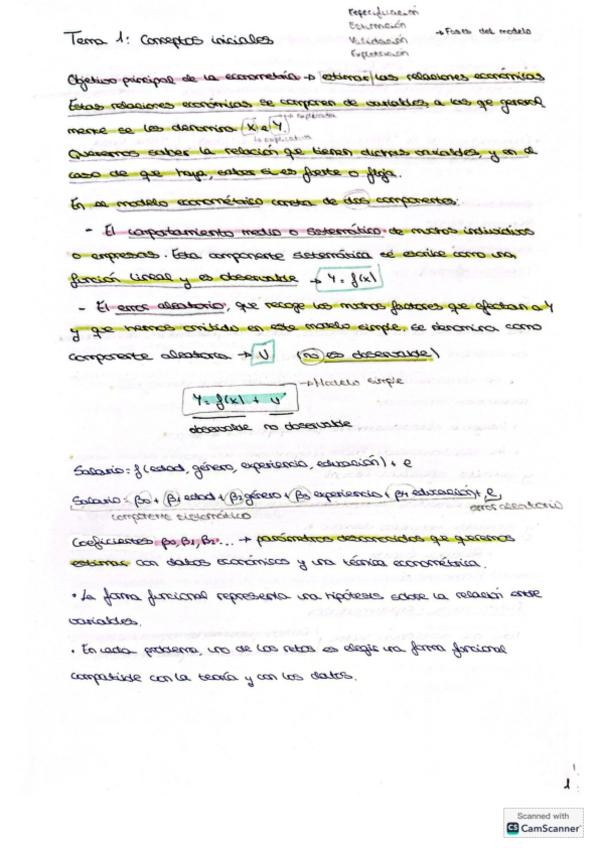 Especificación
Estimación
Validación
Explotación
→ Fases del modelo
Tema 1: Conceptos iniciales
Objetivo principal de la econometría → estimar las relaciones económicas
Estas relaciones económicas se componen de variables, a las que general
→ explicada
mente se les denomina X e Y.
↳ explicativa
Queremos saber la relación que tienen dichas variables, y en el
caso de que haya, saber si es fuerte o floja.
En el modelo econométrico consta de dos componentes:
- El comportamiento medio o sistemático de muchos individuos
o empresas. Esta componente sistemática se escribe como una
función lineal y es observable → Y = f(x)
- El error aleatorio, que recoge los muchos factores que afectan a Y
y que hemos omitido en este modelo simple, se denomina como
componente aleatoria → U (no es observable)
→ Modelo simple
Y = f(x) + U
observable no observable
Salario = f(edad, género, experiencia, educación) + e
Salario = β0 + β1 edad + β2 género + β3 experiencia + β4 educación + e
componente sistemático error aleatorio
Coeficientes β0, β1, β2... → parámetros desconocidos que queremos
estimar con datos económicos y una técnica econométrica.
• La forma funcional representa una hipótesis sobre la relación entre
variables.
• En cada problema, uno de los retos es elegir una forma funcional
compatible con la teoría y con los datos.
1
Scanned with
CS CamScanner